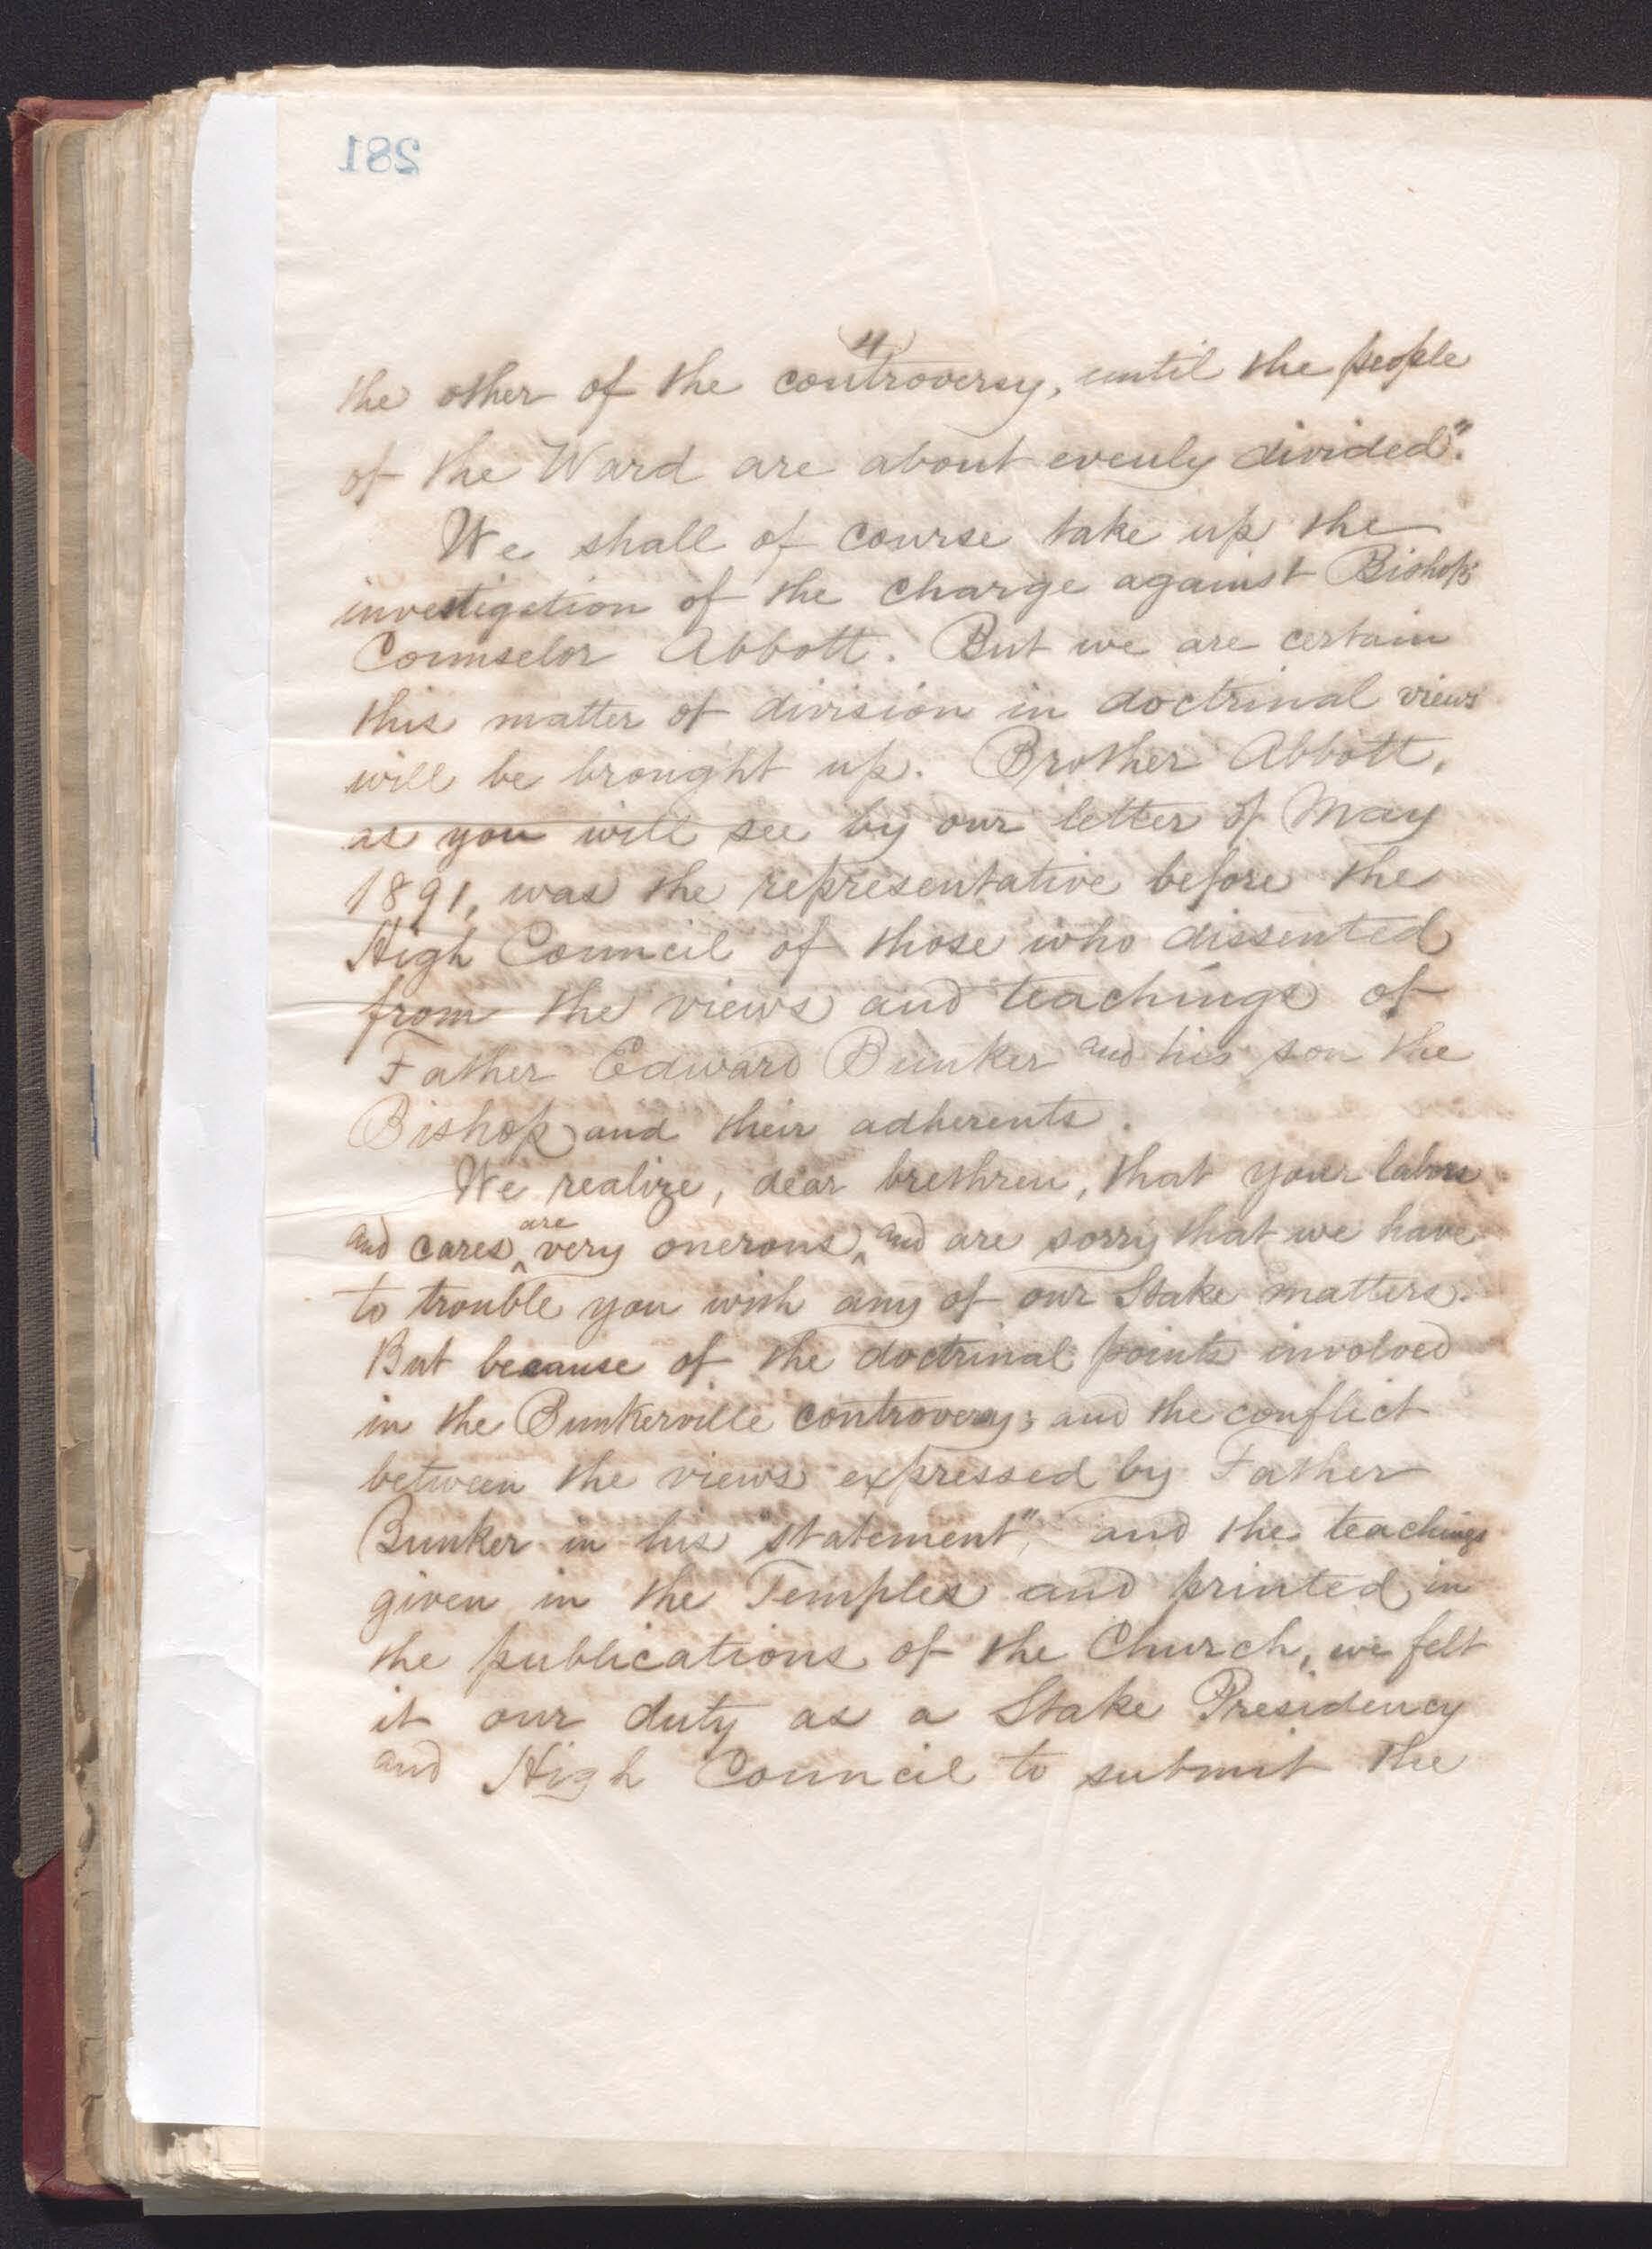 281
(4)
the other of the controversy, until the people
of the Ward are about evenly divided".
We shall of course take up the
investigation of the charge against Bishop's
Counselor Abbott. But we are certain
this matter of division in doctrinal views
will be brought up. Brother Abbott,
as you will see by our letter of May
1891, was the representative before the
High Council of those who dissented
from the views and teachings of
Father Edward Bunker and his son the
Bishop and their adherents.
We realize, dear brethren, that your labors
are
and cares ^ very onerous, ^ and are sorry that we have
to trouble you with any of our Stake matters.
But because of the doctrinal points involved
in the Bunkerville controversy; and the conflict
between the views expressed by Father
Bunker in his "statement", and the teachings
given in the Temples and printed in
the publications of the Church, we felt
it our duty as a Stake Presidency
and High Council to submit the